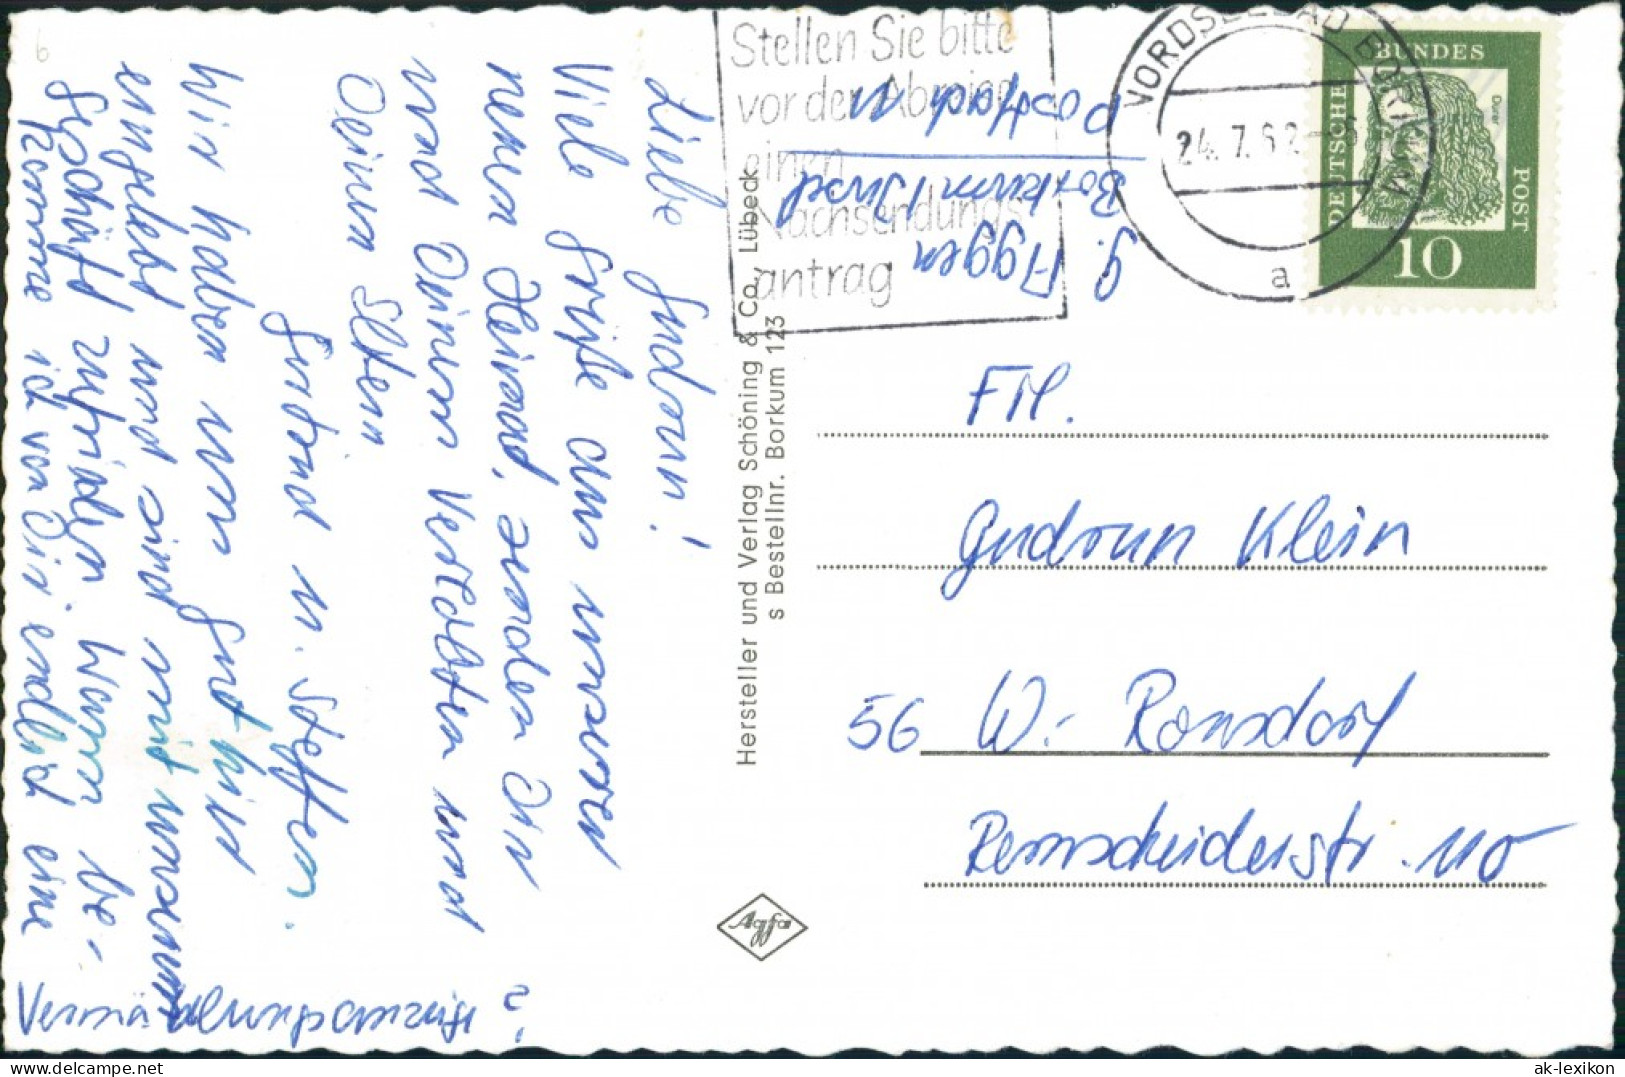 Liebe Gudrun!
Viele Grüße aus unserer
neuen Heimat, senden Dir
und Deinem Verlobten und
Deinen Eltern
Gertrud u. Steffen.
Wir haben uns gut hier
eingelebt und sind mit unserem
Geschäft zufrieden. Wann be-
komme ich von Dir endlich eine
Vermählungsanzeige?
6
Stellen Sie bitte
vor der Abreise
einen
Nachsendungs-
antrag
G. Aggen
Borkum / Insel
Postfach 11
NORDSEEBAD BORKUM
24.7.62
a
DEUTSCHE
BUNDES
POST
Dürer
10
Hersteller und Verlag Schöning & Co., Lübeck
s Bestellnr. Borkum 123
Agfa
Frl.
Gudrun Klein
56 W.- Ronsdorf
Remscheiderstr. 110
© ak-lexikon